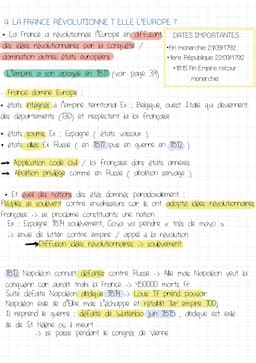 4. LA FRANCE RÉVOLUTIONNE T ELLE L'EUROPE ?
• La France a révolutionné l'Europe en diffusant
des idées révolutionnaires par la conquête /
domination autres états européens
L'empire a son apogée en 1811 (voir page 39)
DATES IMPORTANTES
• fin monarchie 21/09/1792
• 1ère République 22/09/1792
• 1815 fin Empire retour
monarchie
- France domine Europe :
• états intégrés à l'empire territorial Ex : Belgique, ouest Italie qui deviennent
des départements (130) et respectent la loi française
• états soumis Ex : Espagne ( états vassaux )
• états alliés Ex Russie ( en 1811 puis en guerre en 1812 )
→ Application code civil / loi Françaises dans états annexés
→ Abolition privilège comme en Russie ( abolition servage )
• Et éveil des nations des états dominés paradoxalement :
Peuples se soulèvent contre envahisseurs car ils ont adopté idées révolutionnaires
Françaises -> se proclame constituants une nation
Ex : Espagne 1814 soulèvement, Goya va peindre « tres de mayo »
-> envie de lutter contre empire / appel à la révolution
→ Diffusion idées révolutionnaires -> soulèvement
1812 Napoléon connait défaites contre Russie -> Alle mais Napoléon veut la
conquérir car aurait trahi la France -> 450000 morts fr
Suite défaite Napoléon abdique 1814 -> Louis 17 prend pouvoir
Napoléon exilé île d'Elbe mais s'échappe et rétablit 1er empire 100j
Il reprend le guerre : défaite de Waterloo juin 1815 , abdique est exilé
île de St Hélène où il meurt
-> se passe pendant le congrès de Vienne